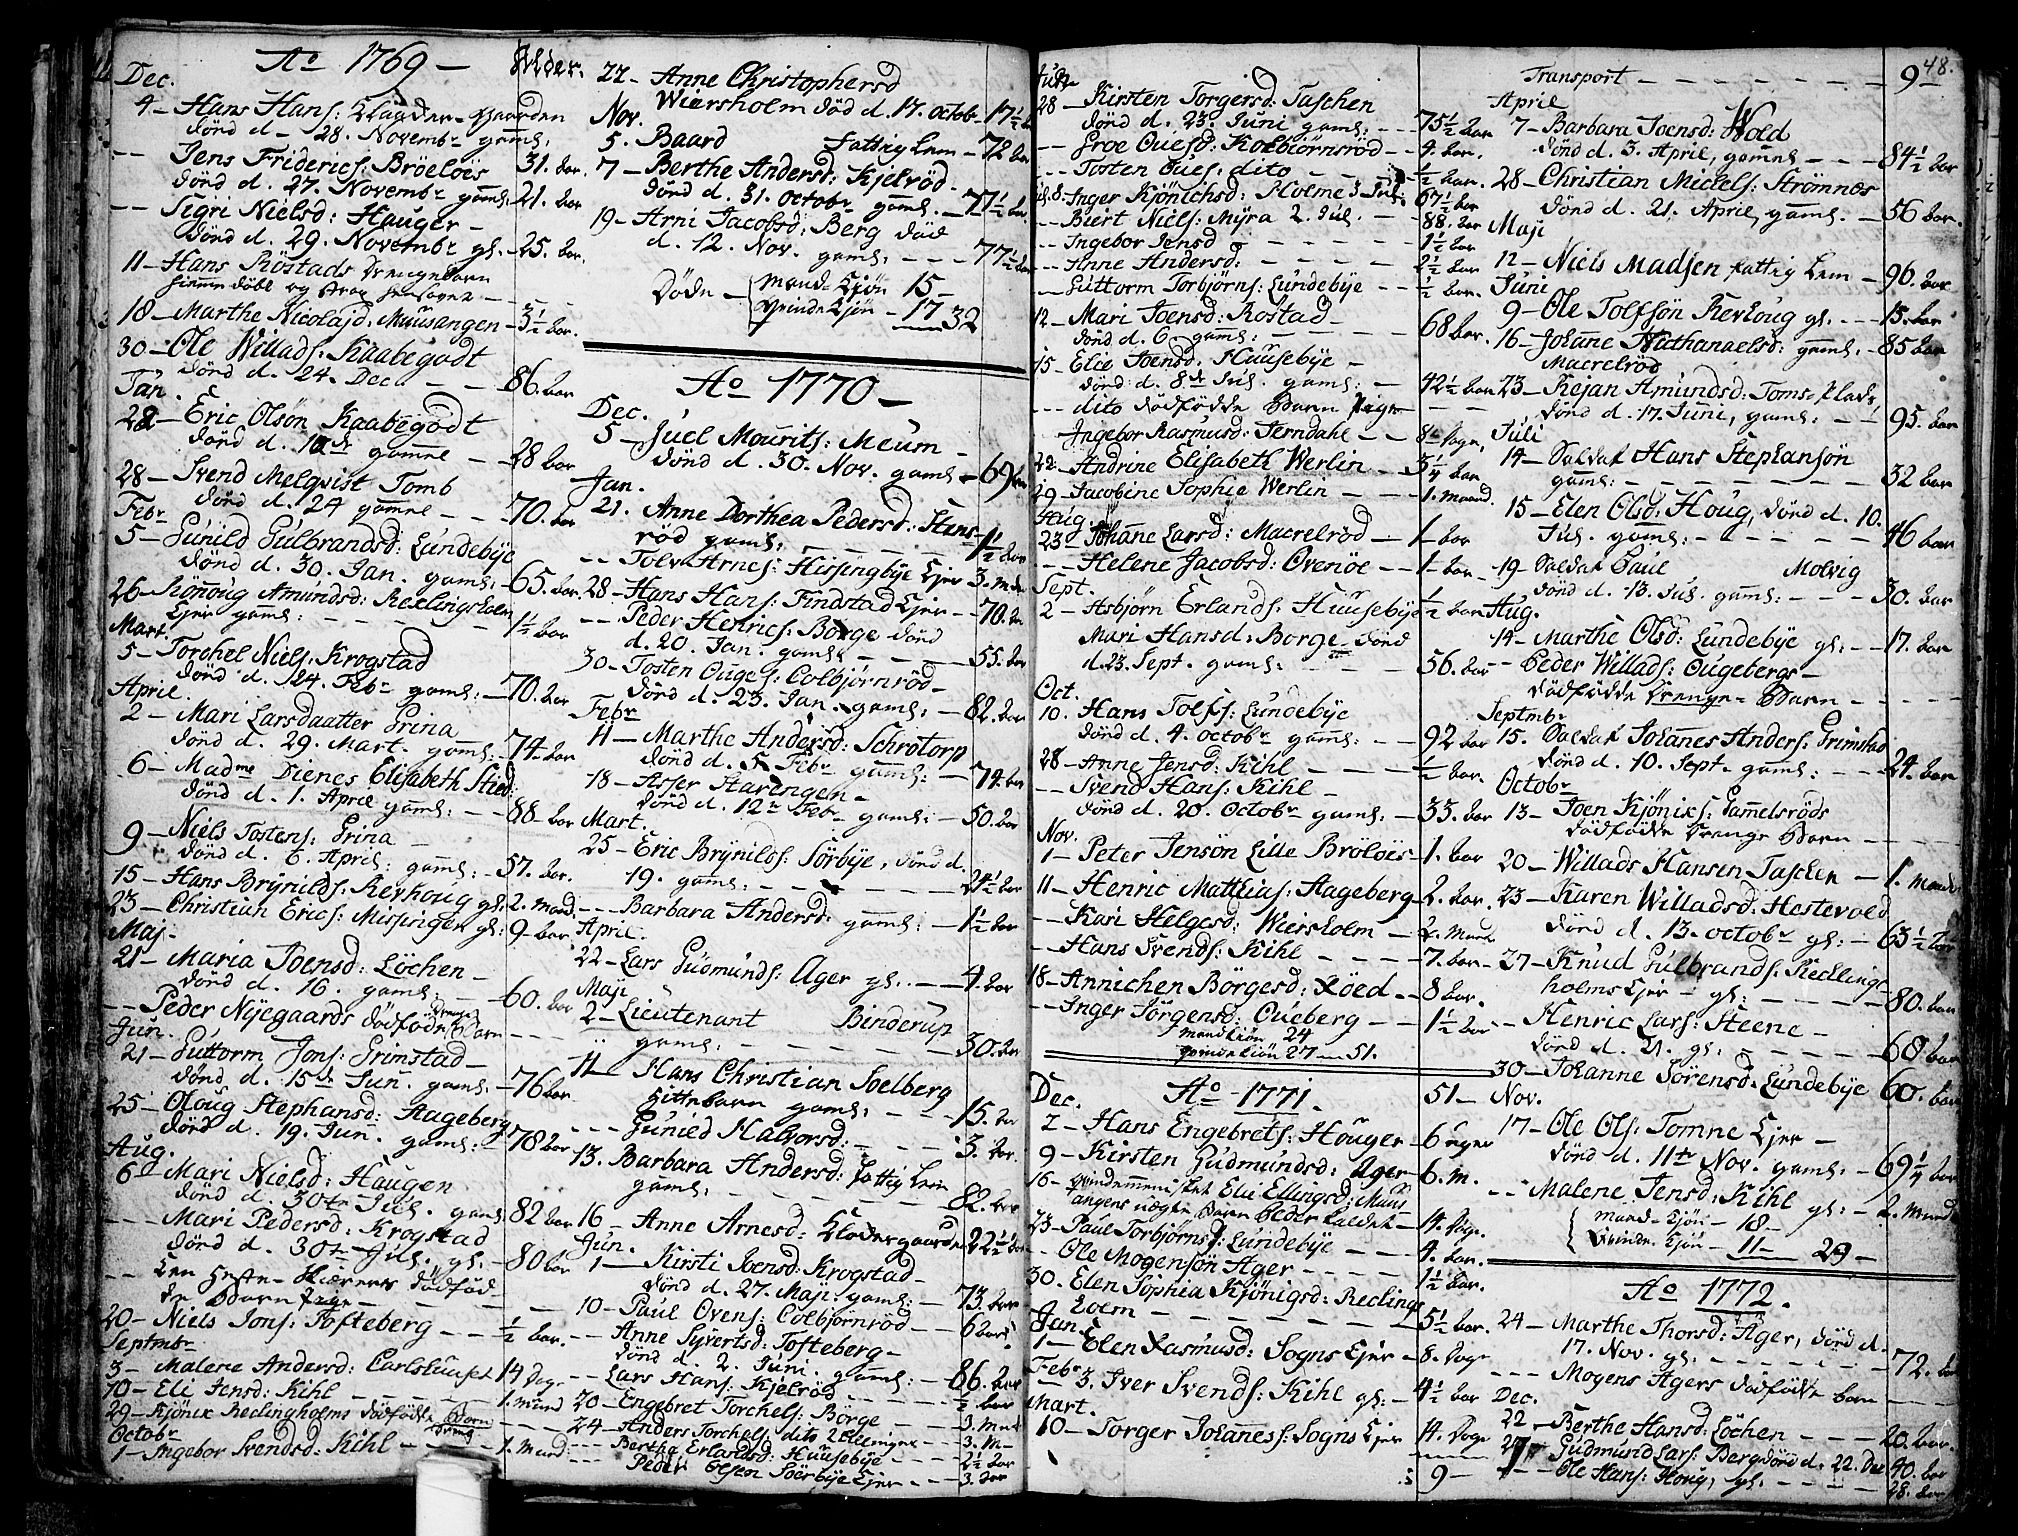 Ao 1769 — Alder.
Dec.
4 — Hans Hans: Klaader-Gaarden
dönd d. 28. Novembr gaml: 31. Aar.
-- Jens Friderics: Bröelöis
dönd d. 27. Novembr gaml: 21. Aar
-- Sigri Nielsd: Hauger —
dönd d. 29. Novembr gl. 25. Aar.
11 — Hans Röstads Drengebarn
hiemme döbt og strax hensovet —
18 — Marthe Nicolajd: Muusangen — 3½ Aar.
30 — Ole Willads: Kaabegodt
dönd d. 24. Dec. — 86. Aar
Jan.
22 — Eric Olsön Kaabegodt
dönd d. gamle — 28 Aar
28 — Svend Melqvist Tomb
dönd d. 24 gamle — 70. Aar
Febr
5 — Gunild Gulbrandsd: Lundebye
dönd d. 30. Jan. gaml: 65. Aar.
26 — Rönnoug Amundsd: Reclingsholm
Ejer gaml: 1½ Aar
Mart.
5 — Torchel Niels: Krogstad
dönd d. 24. Febr gaml: — 70. Aar
April.
2 — Mari Larsdaatter Grina
dönd d. 29. Mart. gaml: 74 Aar
6 — Madme Dienes Elisabeth Stied:
dönd d. 1. April gaml: — 88 Aar
9 — Niels Tostens: Grina —
dönd d. 6. April: gaml: — 57. Aar.
15 — Hans Brynilds: Revhoug gl: 2. Maand.
23 — Christian Erics: Missingen gl: 9 Aar
Maj.
21 — Maria Joensd: Löchen —
dönd d. 16. gaml: — 60. Aar
-- Peder Nyegaards dödfödde Drenge Barn
Jun.
21 — Guttorm Jons: Grimstad —
dönd d. 15de Jun. gaml: — 76 Aar.
25 — Oloug Stephansd: Hageberg
dönd d. 19. Jun. gaml: — 78 Aar
Aug.
6 — Mari Nielsd: Haugen
dönd d. 30te Jul. gaml 82 Aar
--- Mari Pedersd: Krogstad
dönd d. 30te Jul. gl. — 80 Aar
--- Een Heste-Skiærers dödföd-
de Barn Pige —
20 — Niels Jons: Tofteberg — ½ Aar.
Septmbr
3 — Malene Andersd: Carlshuuset 14 Dage
10 — Eli Jensd: Kihl — 1. Maand
29 — Kjönix Reclingholms dödfödde Barn Dreng
Octobr
1 — Ingebor Svendsd: Kihl — 1. Maand
22 — Anne Christophersd
Wiersholm död d. 17. Octob. 17½
Nov.
5. Baard Fattig Lem — 72 Aar
7 — Berthe Andersd: Kjelröd —
dönd d. 31. Octobr gaml. 77½ Aar.
19 — Arni Jacobsd: Berg död
d. 12. Nov. gaml: — 77½ Aar
Döde — Mand-Kjön 15 —
Qvinde Kjön — 17 32
Ao 1770 —
Dec.
5 — Juel Mourits: Meum —
dönd d. 30. Nov. gaml — 69 Aar
Jan.
21. Anne Dorthea Pedersd: Stens-
röd gaml: — 1½ Aar
-- Tolv Arnes: Hissingbye Ejer 3. Mdr
28 — Hans Hans: Findstad Ejer — 70. Aar
-- Peder Henrics: Borge dönd
d. 20. Jan. gaml: — 55. Aar
30 — Tosten Ouges: Colbjörnröd —
dönd d. 23. Jan. gaml: — 82. Aar
Febr
11 — Marthe Andersd: Schrotorp
dönd d. 5 Febr gaml: — 74. Aar
18 — Asser Haringen —
dönd d. 12te Febr gaml: — 50. Aar
Mart.
25 — Eric Brynilds: Sörbye, dönd d.
19. gaml: — 24½ Aar
--- Barbara Andersd: gaml: — 1½ Aar
April.
22 — Lars Gudmunds: Ager gl. — 4. Aar
Maji
2 — Lieutenant Benderup
gaml: — 30. Aar
11 — Hans Christian Soelberg
Hittebarn gaml: — 15. Aar
--- Gunied Halvorsd: — 3. Aar.
13. Barbara Andersd: Fattig Lem
gaml: — 82. Aar
16 — Anne Arnesd: Kladergaarden 22½ Aar
Jun.
1 — Kirsti Joensd: Krogstad —
dönd d. 27. Maji gaml: — 73. Aar
10 — Paul Ovens: Colbjörnröd — 6 Aar
-- Anne Syvertsd: Tofteberg —
dönd d. 2. Juni gaml: — 86. Aar
-- Lars Hans: Kjelröd — ½ Aar
20 — Engebret Torchels: Börge — 3. Mdr
24 — Anders Torchels: dito Tvillinger — 3. M —
--- Berthe Erlandsd: Huusebye — 2½ Aar
--- Peder Olsen Soerbye Ejer — 3. Aar
Jun.
28 — Kirsten Torgersd: Taschen
dönd d. 23. Juni gaml: — 75½ Aar
-- Groe Ouesd: Kolbiörnsröd — 4. Aar.
-- Tosten Oues. dito — ½ Aar.
Jul. 8. Inger Kjönichsd: Holme 3 Juli 67½ Aar
-- Biert Niels: Myra 2. Jul. — 88. Aar
-- Ingebor Jensd — 1½ Aar
-- Anne Andersd: — 2½ Aar
-- Guttorm Torbjörns: Lundebye — ½ Aar.
12 — Mari Joensd: Rostad —
dönd d. 6 gaml: — 68 Aar.
15 — Elie Joensd: Huusebye —
dönd d. 8de Jul. gaml: — 42½ Aar
--- dito dödfödde Barn Pige
Jngebor Rasmusd: Jerndahl — 8te Dage,
22 — Andrine Elisabeth Werlin — 3¼ Aar
29 — Jacobine Sophie Werlin — 1. Maand
Aug.
23 — Johane Larsd: Macrelröd — 1 Aar
-- Helene Jacobsd: Ovenöe — 1 Aar
Sept.
2 — Asbjörn Erlands: Huusebye ½ Aar
Mari Hansd: Borge dönd
d. 23. Sept. gaml: — 56. Aar
Oct.
10. Hans Tolfs: Lundebye
dönd d. 4. Octobr gaml: — 92 Aar
28 — Anne Jensd: Kihl — ½ Aar.
-- Svend Hans: Kihl —
dönd d. 20. Octobr gaml: — 33. Aar
Nov.
1 — Peter Jensön Lille Brölöis — 1. Aar
11 — Henric Matthias: Hageberg — 2. Aar.
-- Kari Helgesd: Wiersholm — 2. Mdr
-- Hans Svends: Kihl — 7. Aar
18 — Annichen Börgesd: Röed — 8 Aar.
-- Inger Jörgensd: Oueberg — 1½ Aar
Mandkiön 24
Qvindekiön 27 — 51.
Dec. Ao 1771. 51 —
2 — Hans Engebrets: Houger — 6 uger
9 — Kirsten Gudmundsd: Ager — 6. M.
16 — Qvindemennisket Elie Ellingsd: Muus-
angens uægte Barn Peder kaldet — 14. Dage.
23 — Paul Torbjörns: Lundebye — 4. Aar.
-- Ole Mogensön Ager — 1½ Aar.
30. Elen Sophia Kjönigsd: Reclings-
holm — 5½ Aar.
Jan.
1 — Elen Rasmusd: Sogns Ejer — 8. Dage
Febr 3. Iver Svends: Kihl gl: — 4½ Aar
Mart.
10 — Torger Johaness: Sogns Ejer 14. Dage
9 —
48.
Transport — 9 —
April
7 — Barbara Joensd: Wold
dönd d. 3. April, gamle — 84½ Aar
28 — Christian Mickels: Strömnes
dönd d. 21. April, gaml: — 56 Aar.
Maji
12 — Niels Madsen fattig Lem — 90. Aar
Juni
9 — Ole Tolfsön Revhoug gl. — 15. Aar
16 — Johane Nathanaelsd: gaml: 85 Aar
Macrelröd
23 — Kejan Amundsd: Toms Plads
dönd d. 17. Juni, gaml: — 95. Aar
Juli
14 — Soldat Hans Stephansön
gaml: — 32 Aar
15 — Elen Olsd: Houg, dönd d. 10.
Jul. gaml: — 46 Aar
19 — Soldat Paul Molvig
dönd d. 13. Jul. gaml: — 30. Aar
Aug.
14 — Marthe Olsd: Lundebye gl: — 17. Aar
-- Peder Willads: Ougebergs —
dödfödde Drenge-Barn —
Septmbr
15. Soldat Johanes Anders: Grimstad
dönd d. 10. Sept. gaml: — 24. Aar
Octobr
13 — Joen Kjönix: Gammelsröds
dödfödde Drenge Barn —
20 — Willads Hansen Taschen — 1. Maand
23 — Karen Willadsd: Hestevold
dönd d. 13. Octobr gl: — 63½ Aar
27 — Knud Gulbrands: Reclings-
holms Ejer — gl: — 80. Aar
-- Henric Lars: Steene —
dönd d. 21. gl: — 68 Aar
30 — Johanne Sörensd: Lundebye 60. Aar
Nov.
17 — Ole Ols: Tomne Ejer —
dönd d. 11te Nov. gaml: — 69¼ Aar
-- Malene Jensd: Kihl gl: — 2. Maand
Mand-Kjön — 18 —
Qvinde-Kjön — 11 — 29 —
Ao 1772.
24 — Marthe Thorsd: Ager, dönd d.
17. Nov. gl: — 72. Aar
Mogens Agers dödfödde barn —
Dec.
22 — Berthe Hansd: Löchen — 20. Aar.
27 — Gudmund Lars: Berg dönd d. 22. Dec 40. Aar
-- Ole Hans: Houg, gl: — 28. Aar